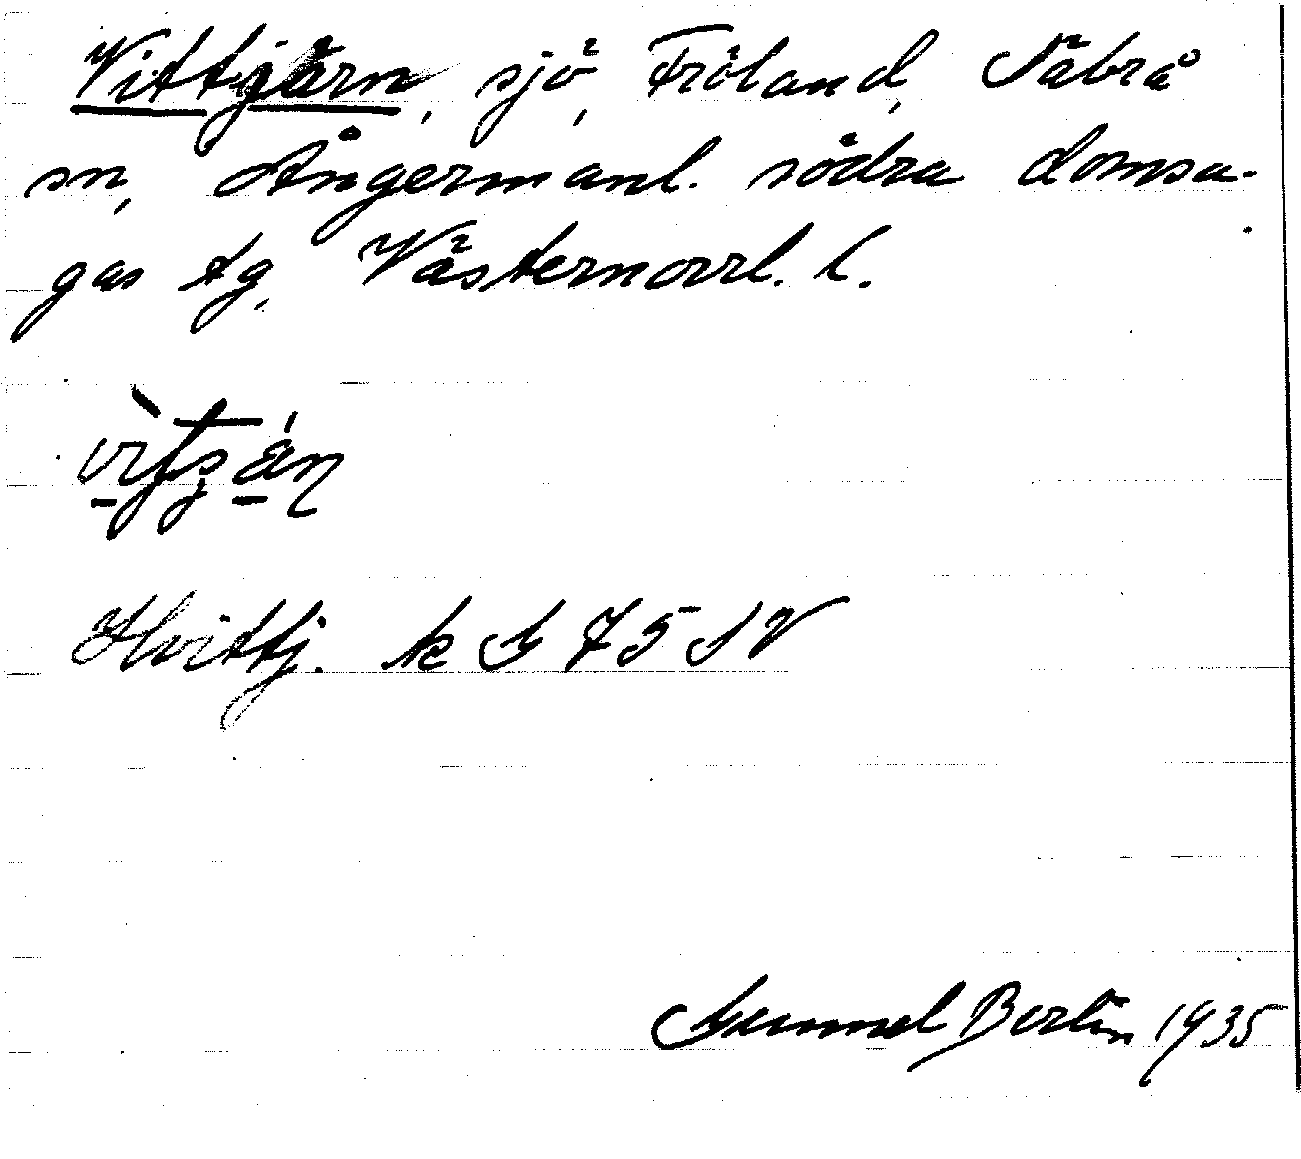 Vittjärn, sjö, Fröland, Säbrå
sn, Ångermanl. södra domsa-
gas tg, Västernorrl. l.
Hvittj. k G 75 SV
Gunnel Bertin 1935